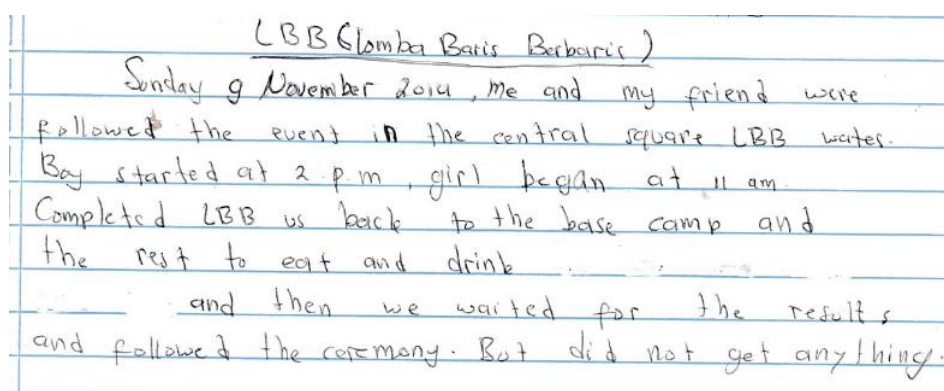 LBB (lomba Baris Berbaris)
Sunday 9 November 2014, me and my friend were
followed the event in the central square LBB wates.
Boy started at 2 p.m, girl began at 11 am.
Completed LBB us back to the base camp and
the rest to eat and drink
and then we waited for the results
and followed the ceremony. But did not get anything.